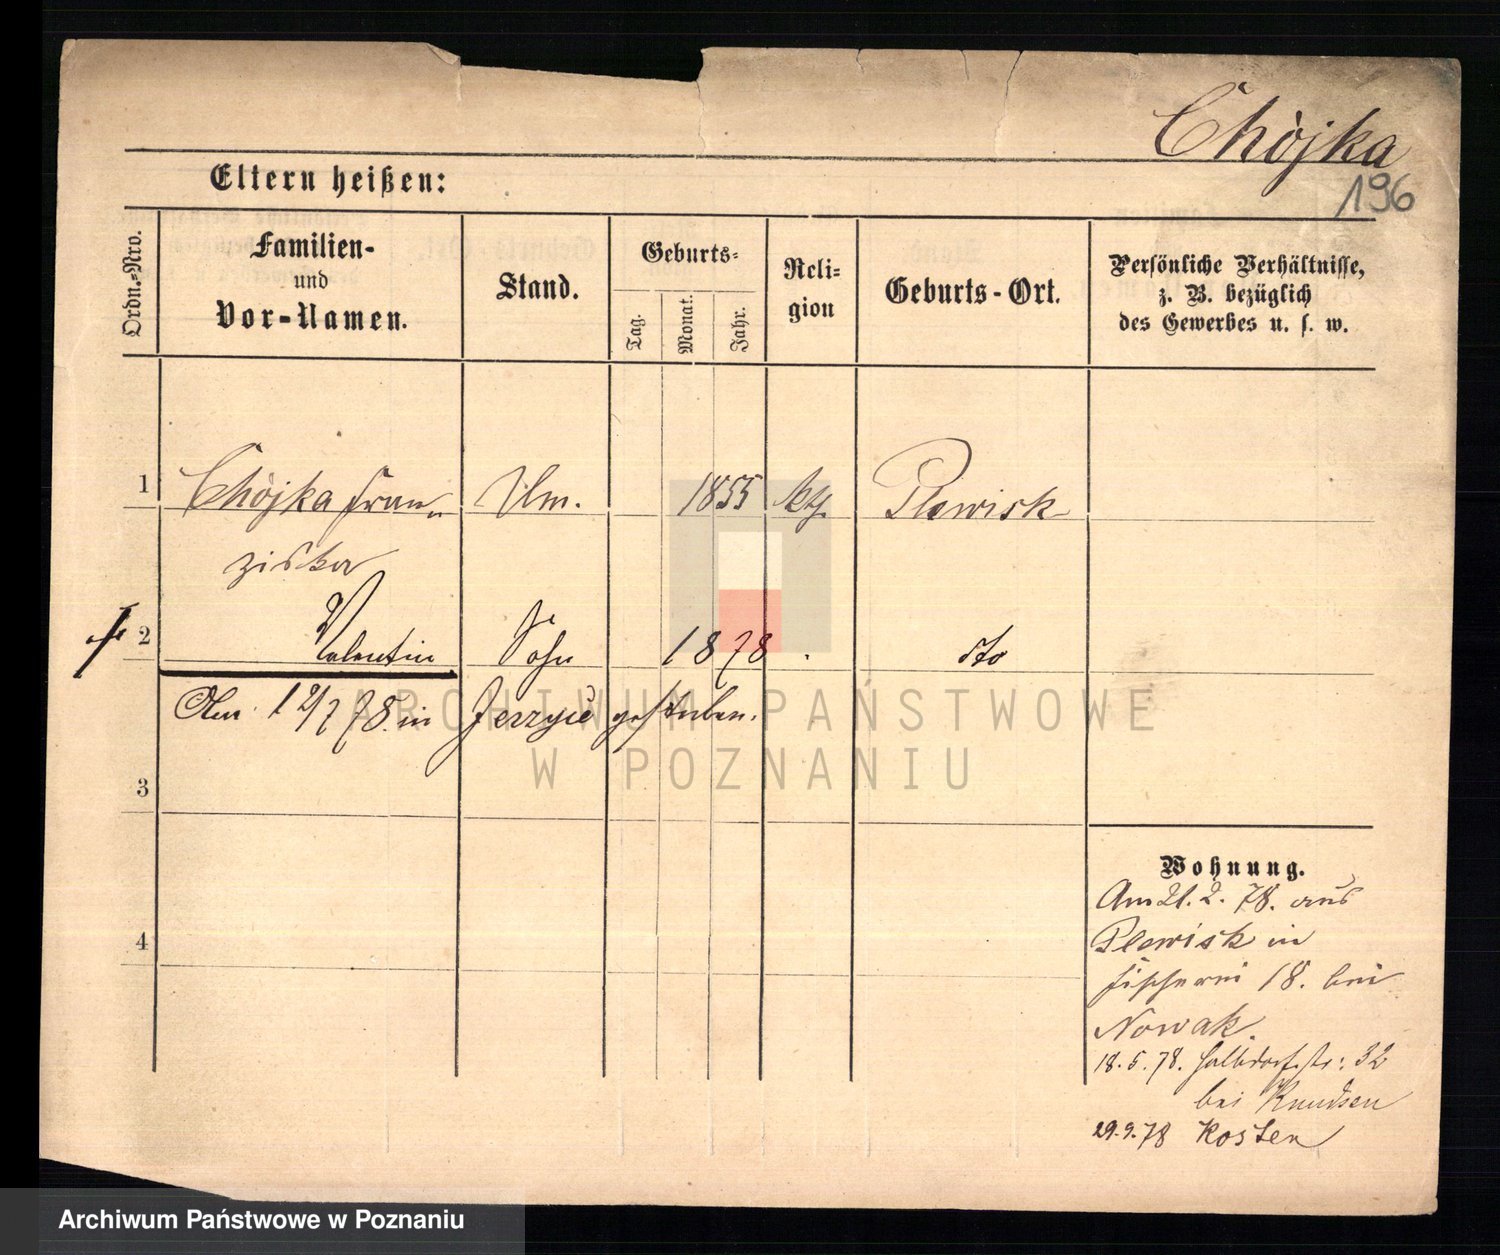 Chòjka
196
Eltern heißen:
Ordn.-Nro.
Familien-
und
Vor-Namen.
Stand.
Geburts-
Tag.
Monat.
Jahr.
Reli-
gion
Geburts-Ort.
Persönliche Verhältnisse,
z. B. bezüglich
des Gewerbes u. s. w.
1 Chòjka Fran- 1855 kth. Plewisk
ziska
2 Valentin Sohn 1878 dto
Am 12/7 78. in Jerzyce gestorben.
3
4
Wohnung.
Am 21. 2. 78. aus
Plewisk in
Fischerei 18. bei
Nowak.
18. 5. 78. Halbdorfstr: 32
bei Knudsen
29. 9. 78 Kosten
ARCHIWUM PAŃSTWOWE
W POZNANIU
Archiwum Państwowe w Poznaniu